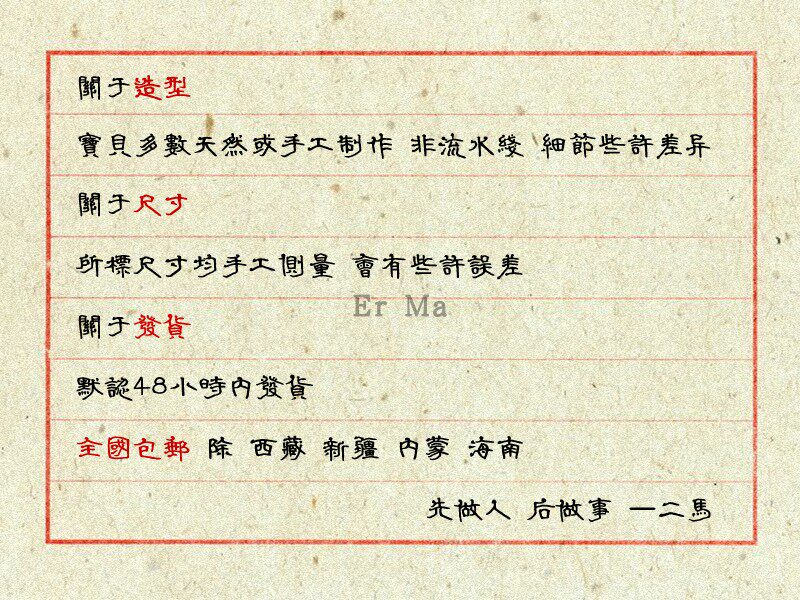 關于造型
寶貝多數天然或手工制作 非流水綫 細節些許差异
關于尺寸
所標尺寸均手工側量 會有些許誤差
Er Ma
關于發貨
默認48小時內發貨
全國包郵 除 西藏 新疆 內蒙 海南
先做人 后做事 一二馬